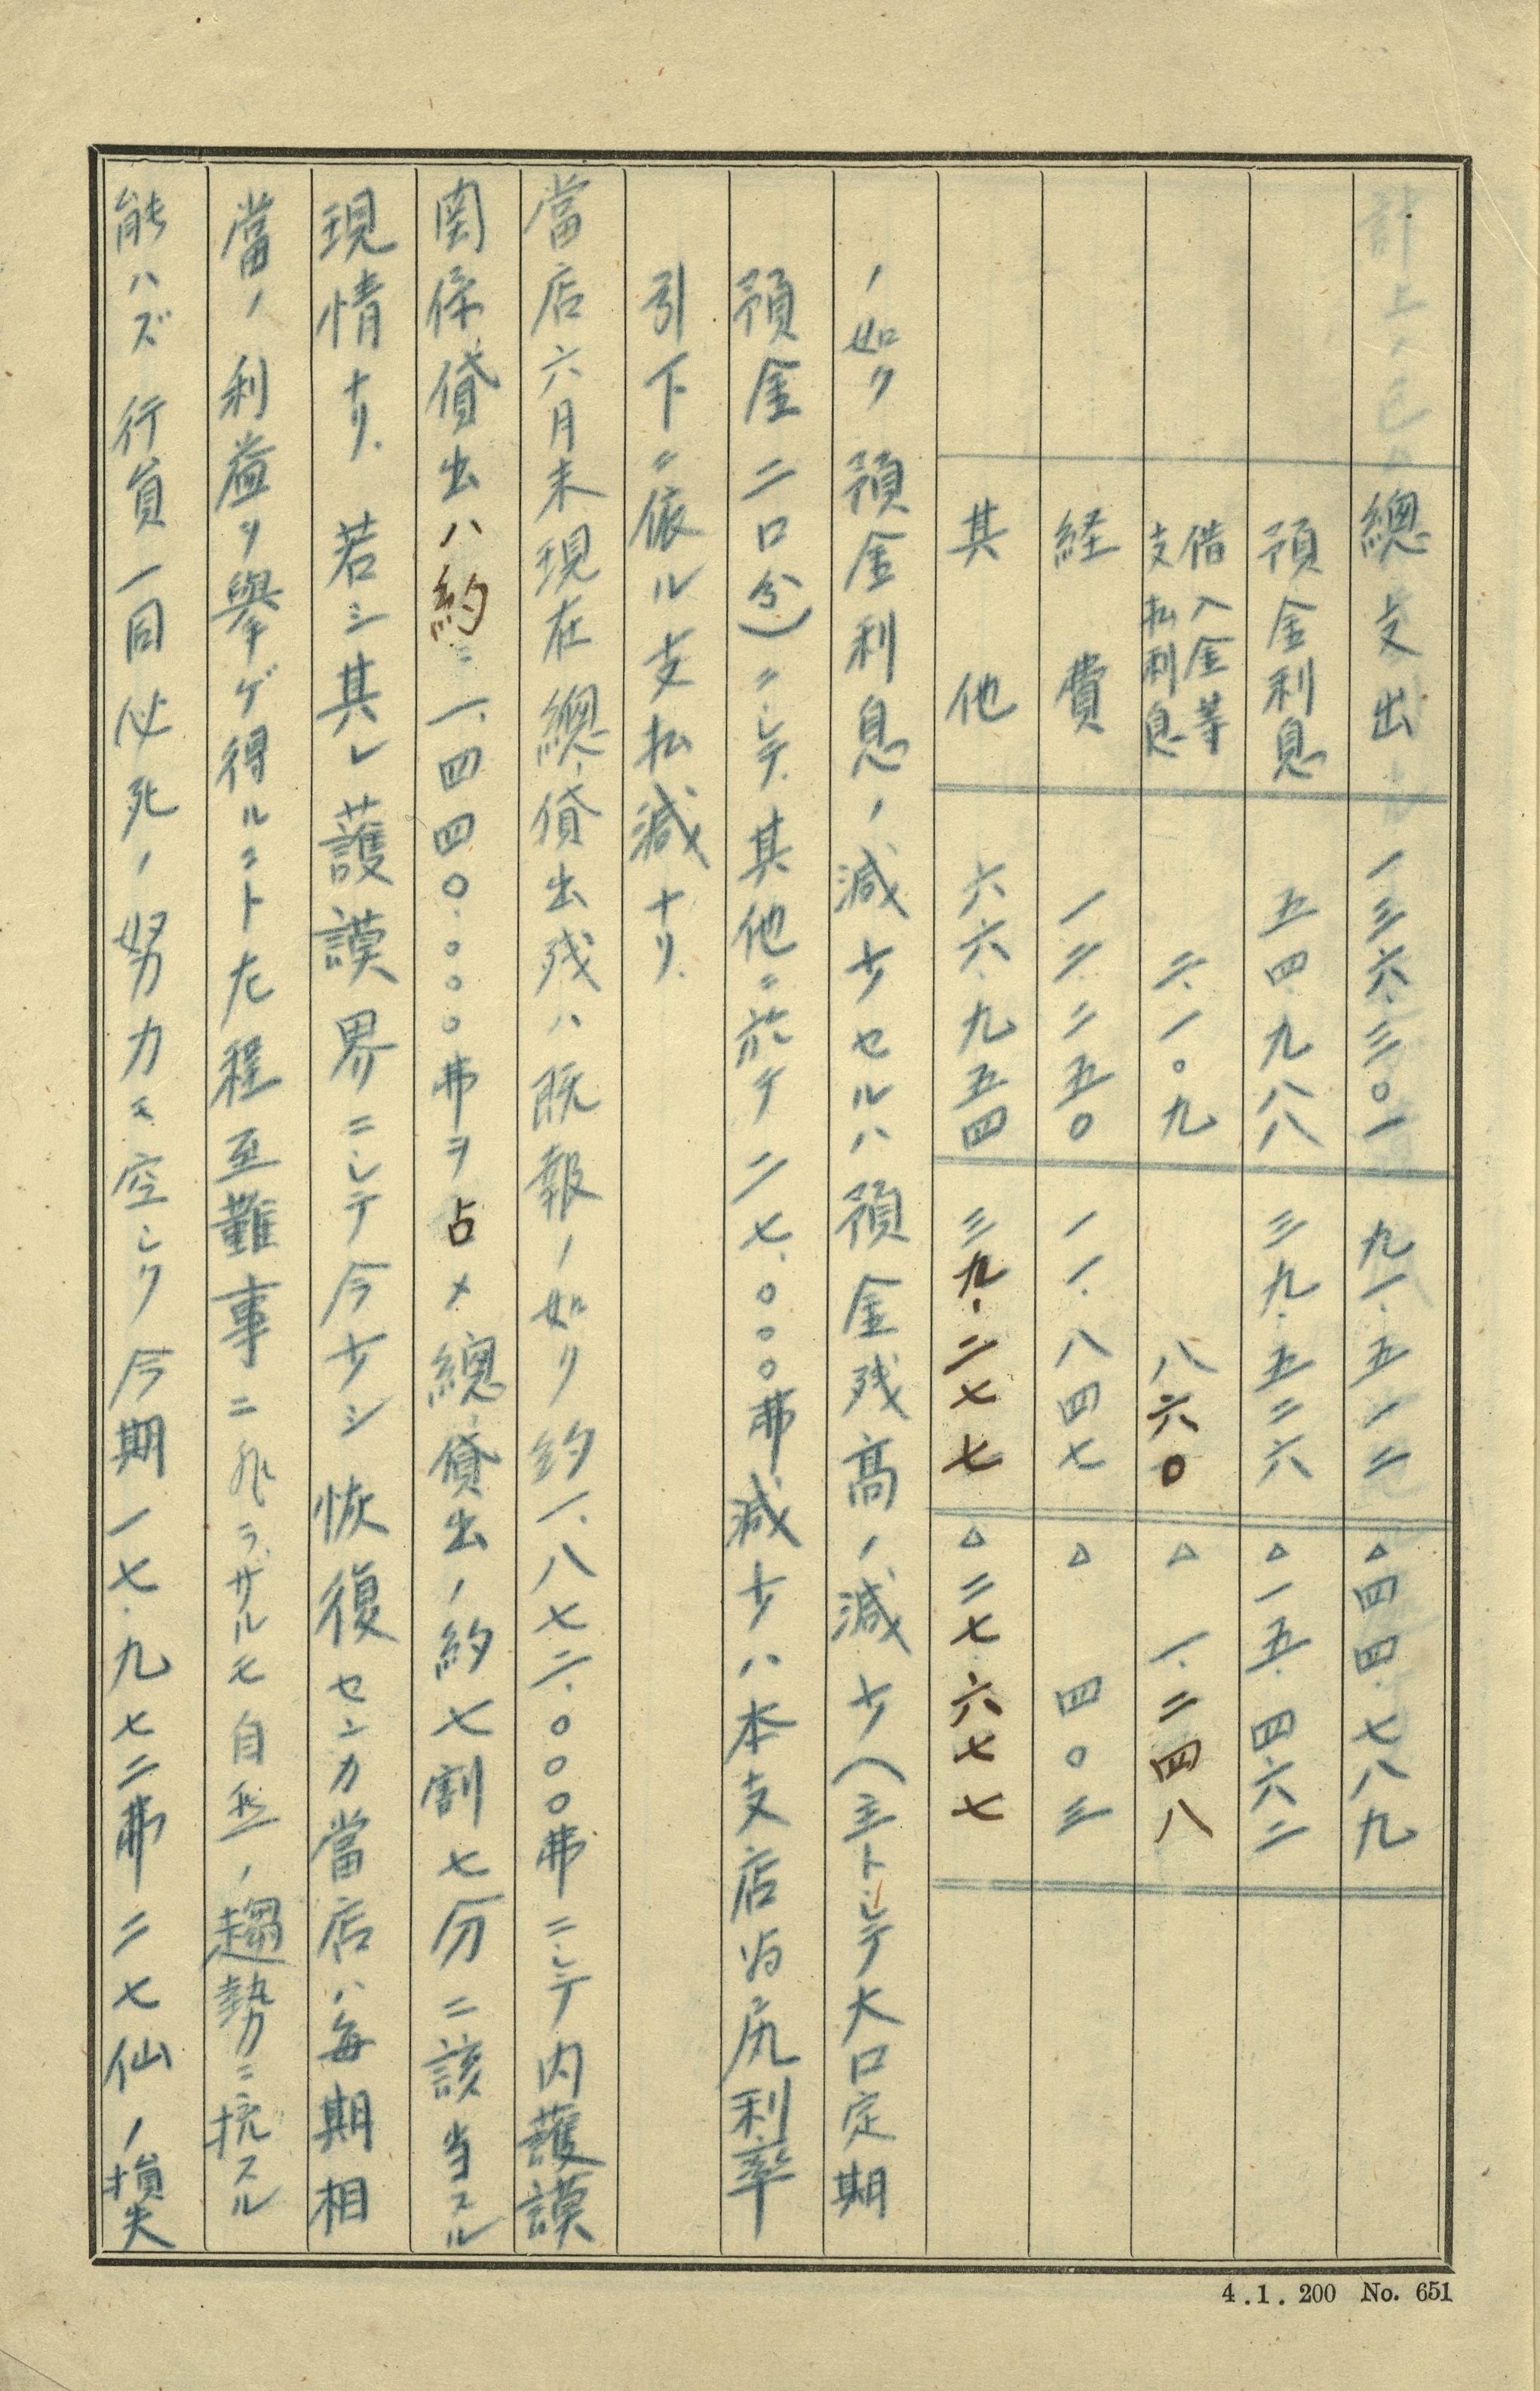 總支出 一三六.三〇一 九一.五一二 △四四.七八九
預金利息 五四.九八八 三九.五二六 △一五.四六二
借入金等支払利息 二.一〇九 八六〇 △一.二四八
経費 一二.二五〇 一一.八四七 △四〇三
其他 六六.九五四 三九.二七七 △二七.六七七
ノ如ク預金利息ノ減少セルハ預金残高ノ減少(主トシテ大口定期
預金二口分)ニシテ.其他ニ於テ二七.〇〇〇弗減少ハ本支店為尻利率
引下ニ依ル支払減ナリ.
當店六月末現在總貸出残ハ既報ノ如ク約一.八七二.〇〇〇弗ニシテ内護謨
関係貸出ハ約ニ一.四四〇.〇〇〇弗ヲ占メ總貸出ノ約七割七分ニ該当スル
現情ナリ.若シ其レ護謨界ニシテ今少シ恢復センカ當店ハ毎期相
當ノ利益ヲ擧ゲ得ルコト左程至難事ニ非ラザルモ自然ノ趨勢ニ抗スル
能ハズ行員一同必死ノ努力モ空シク今期一七.九七二弗二七仙ノ損失
4.1.200 No. 651